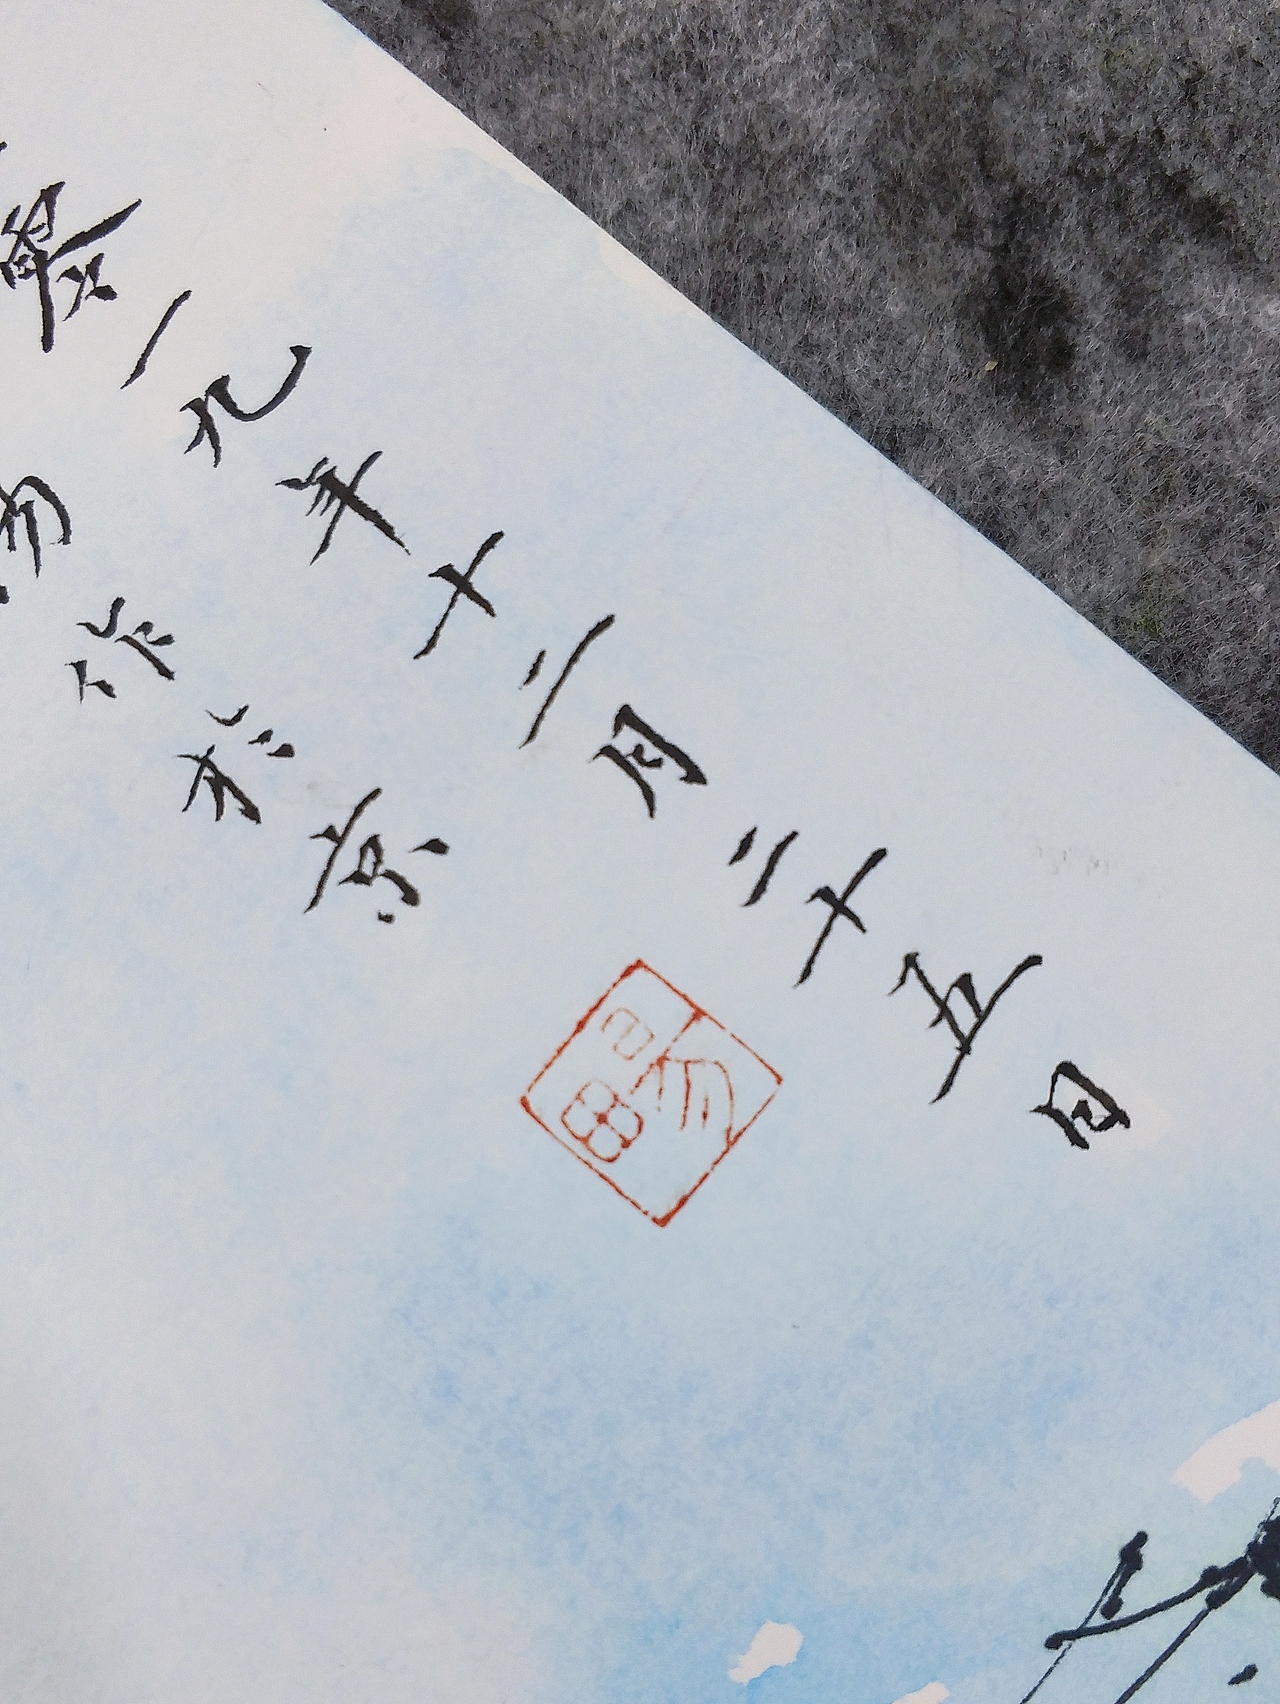 一九年十二月二十五日
作於京